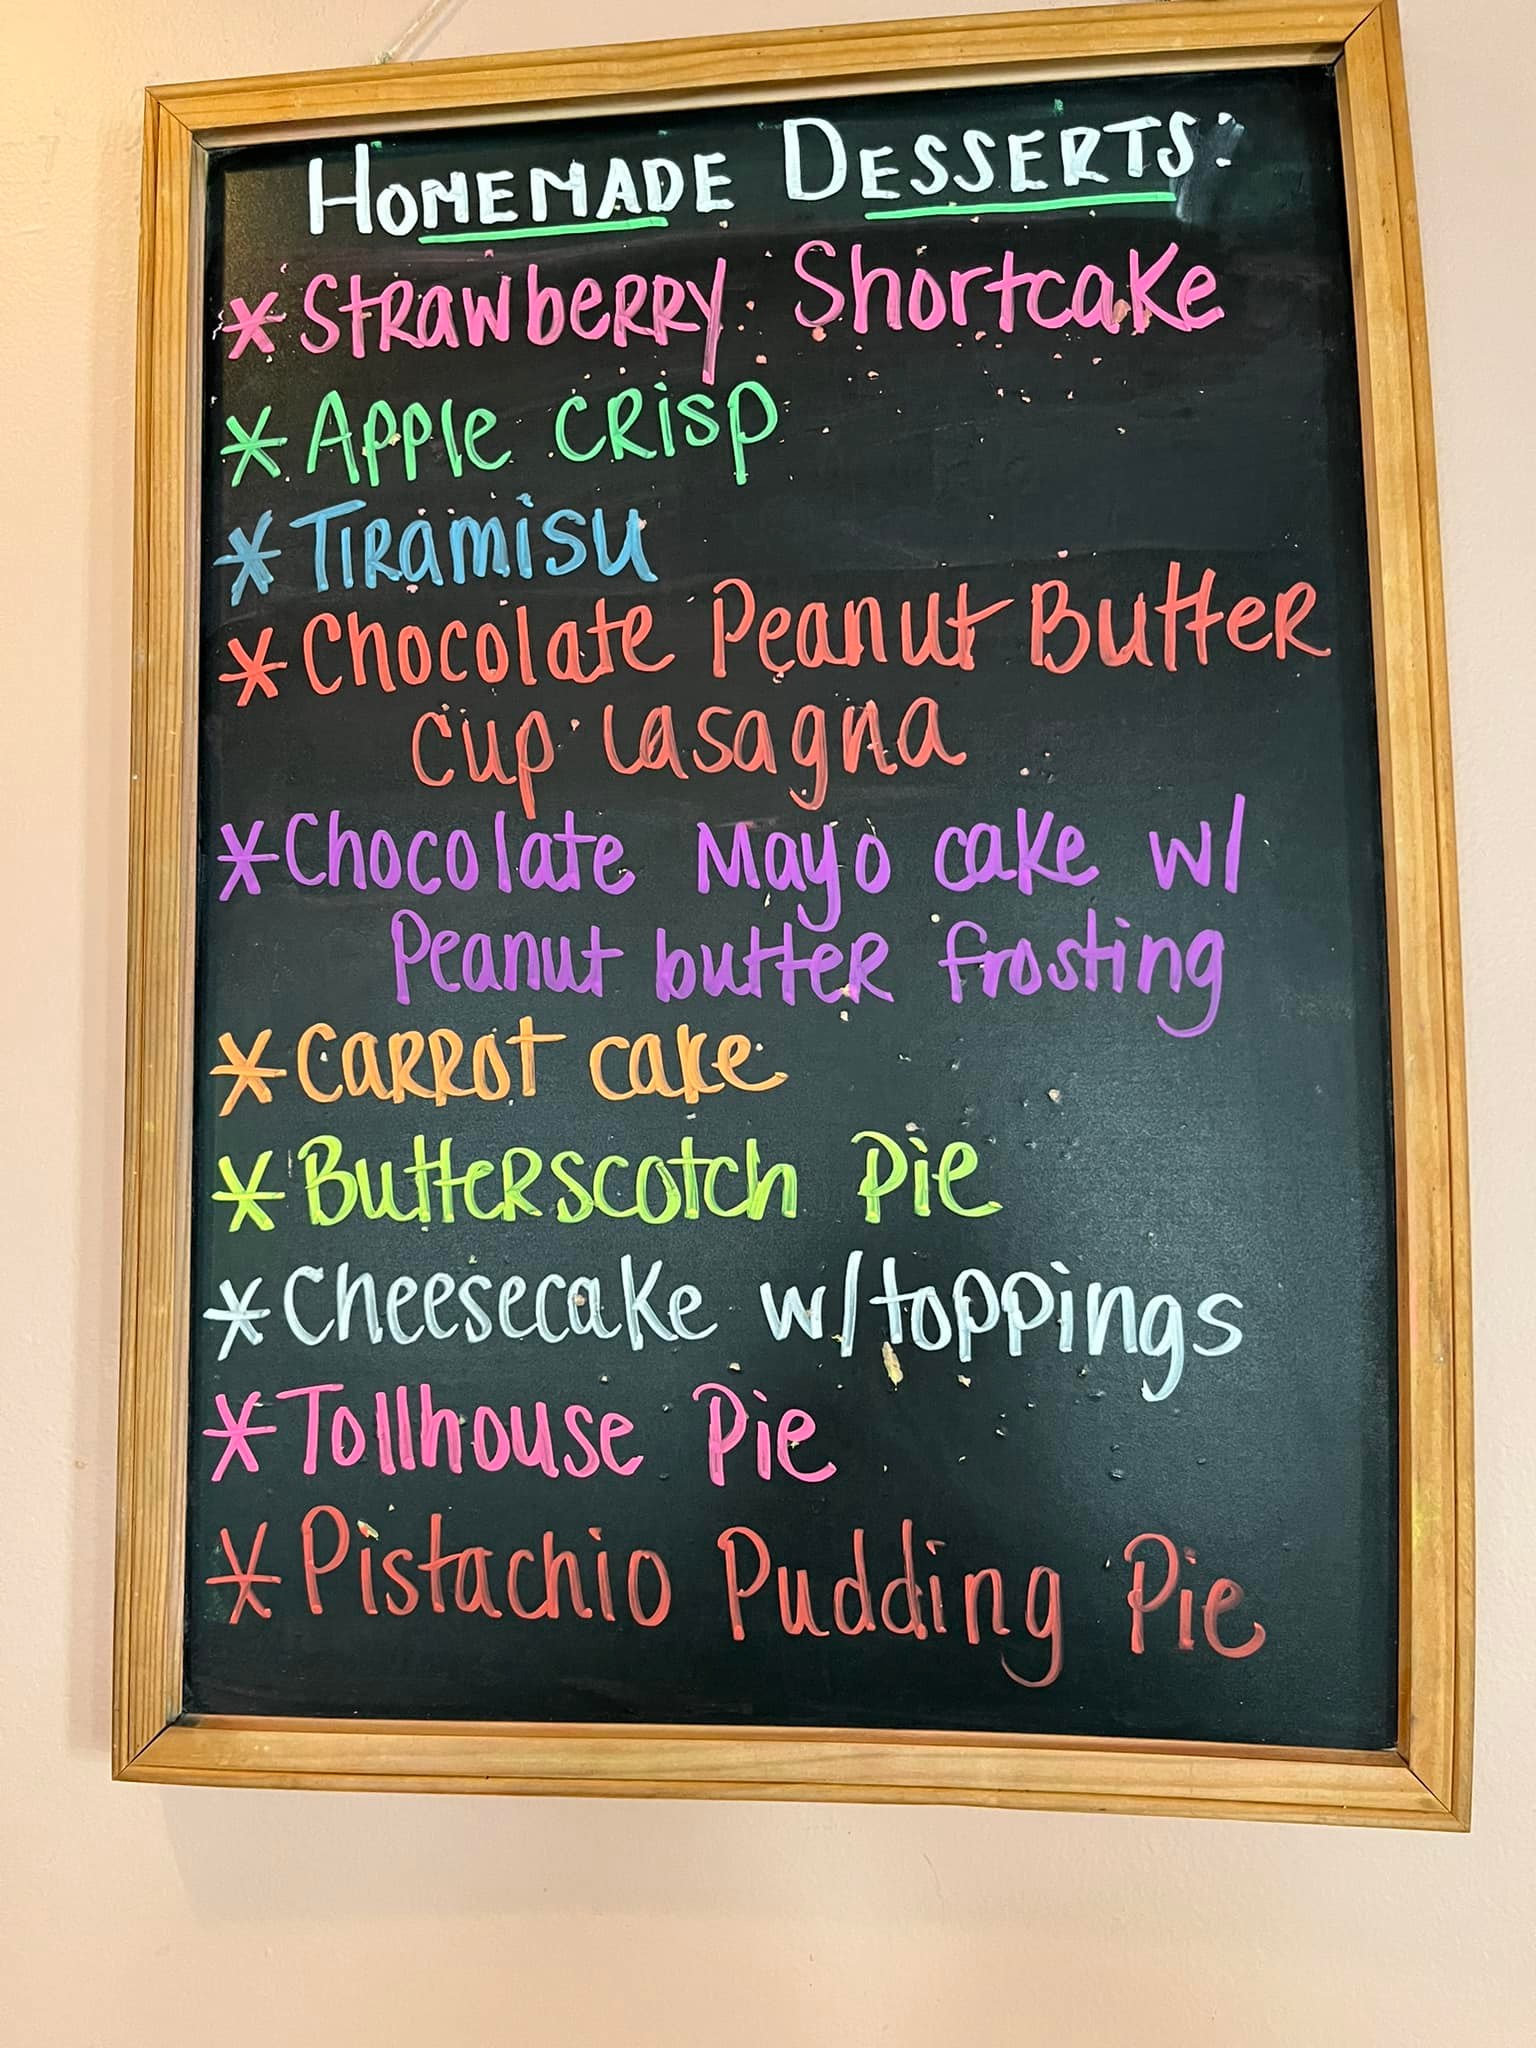 Homemade Desserts:
* Strawberry Shortcake
* Apple crisp
* Tiramisu
* Chocolate Peanut Butter
cup lasagna
* Chocolate Mayo cake w/
Peanut butter frosting
* Carrot cake
* Butterscotch Pie
* Cheesecake w/toppings
* Tollhouse Pie
* Pistachio Pudding Pie